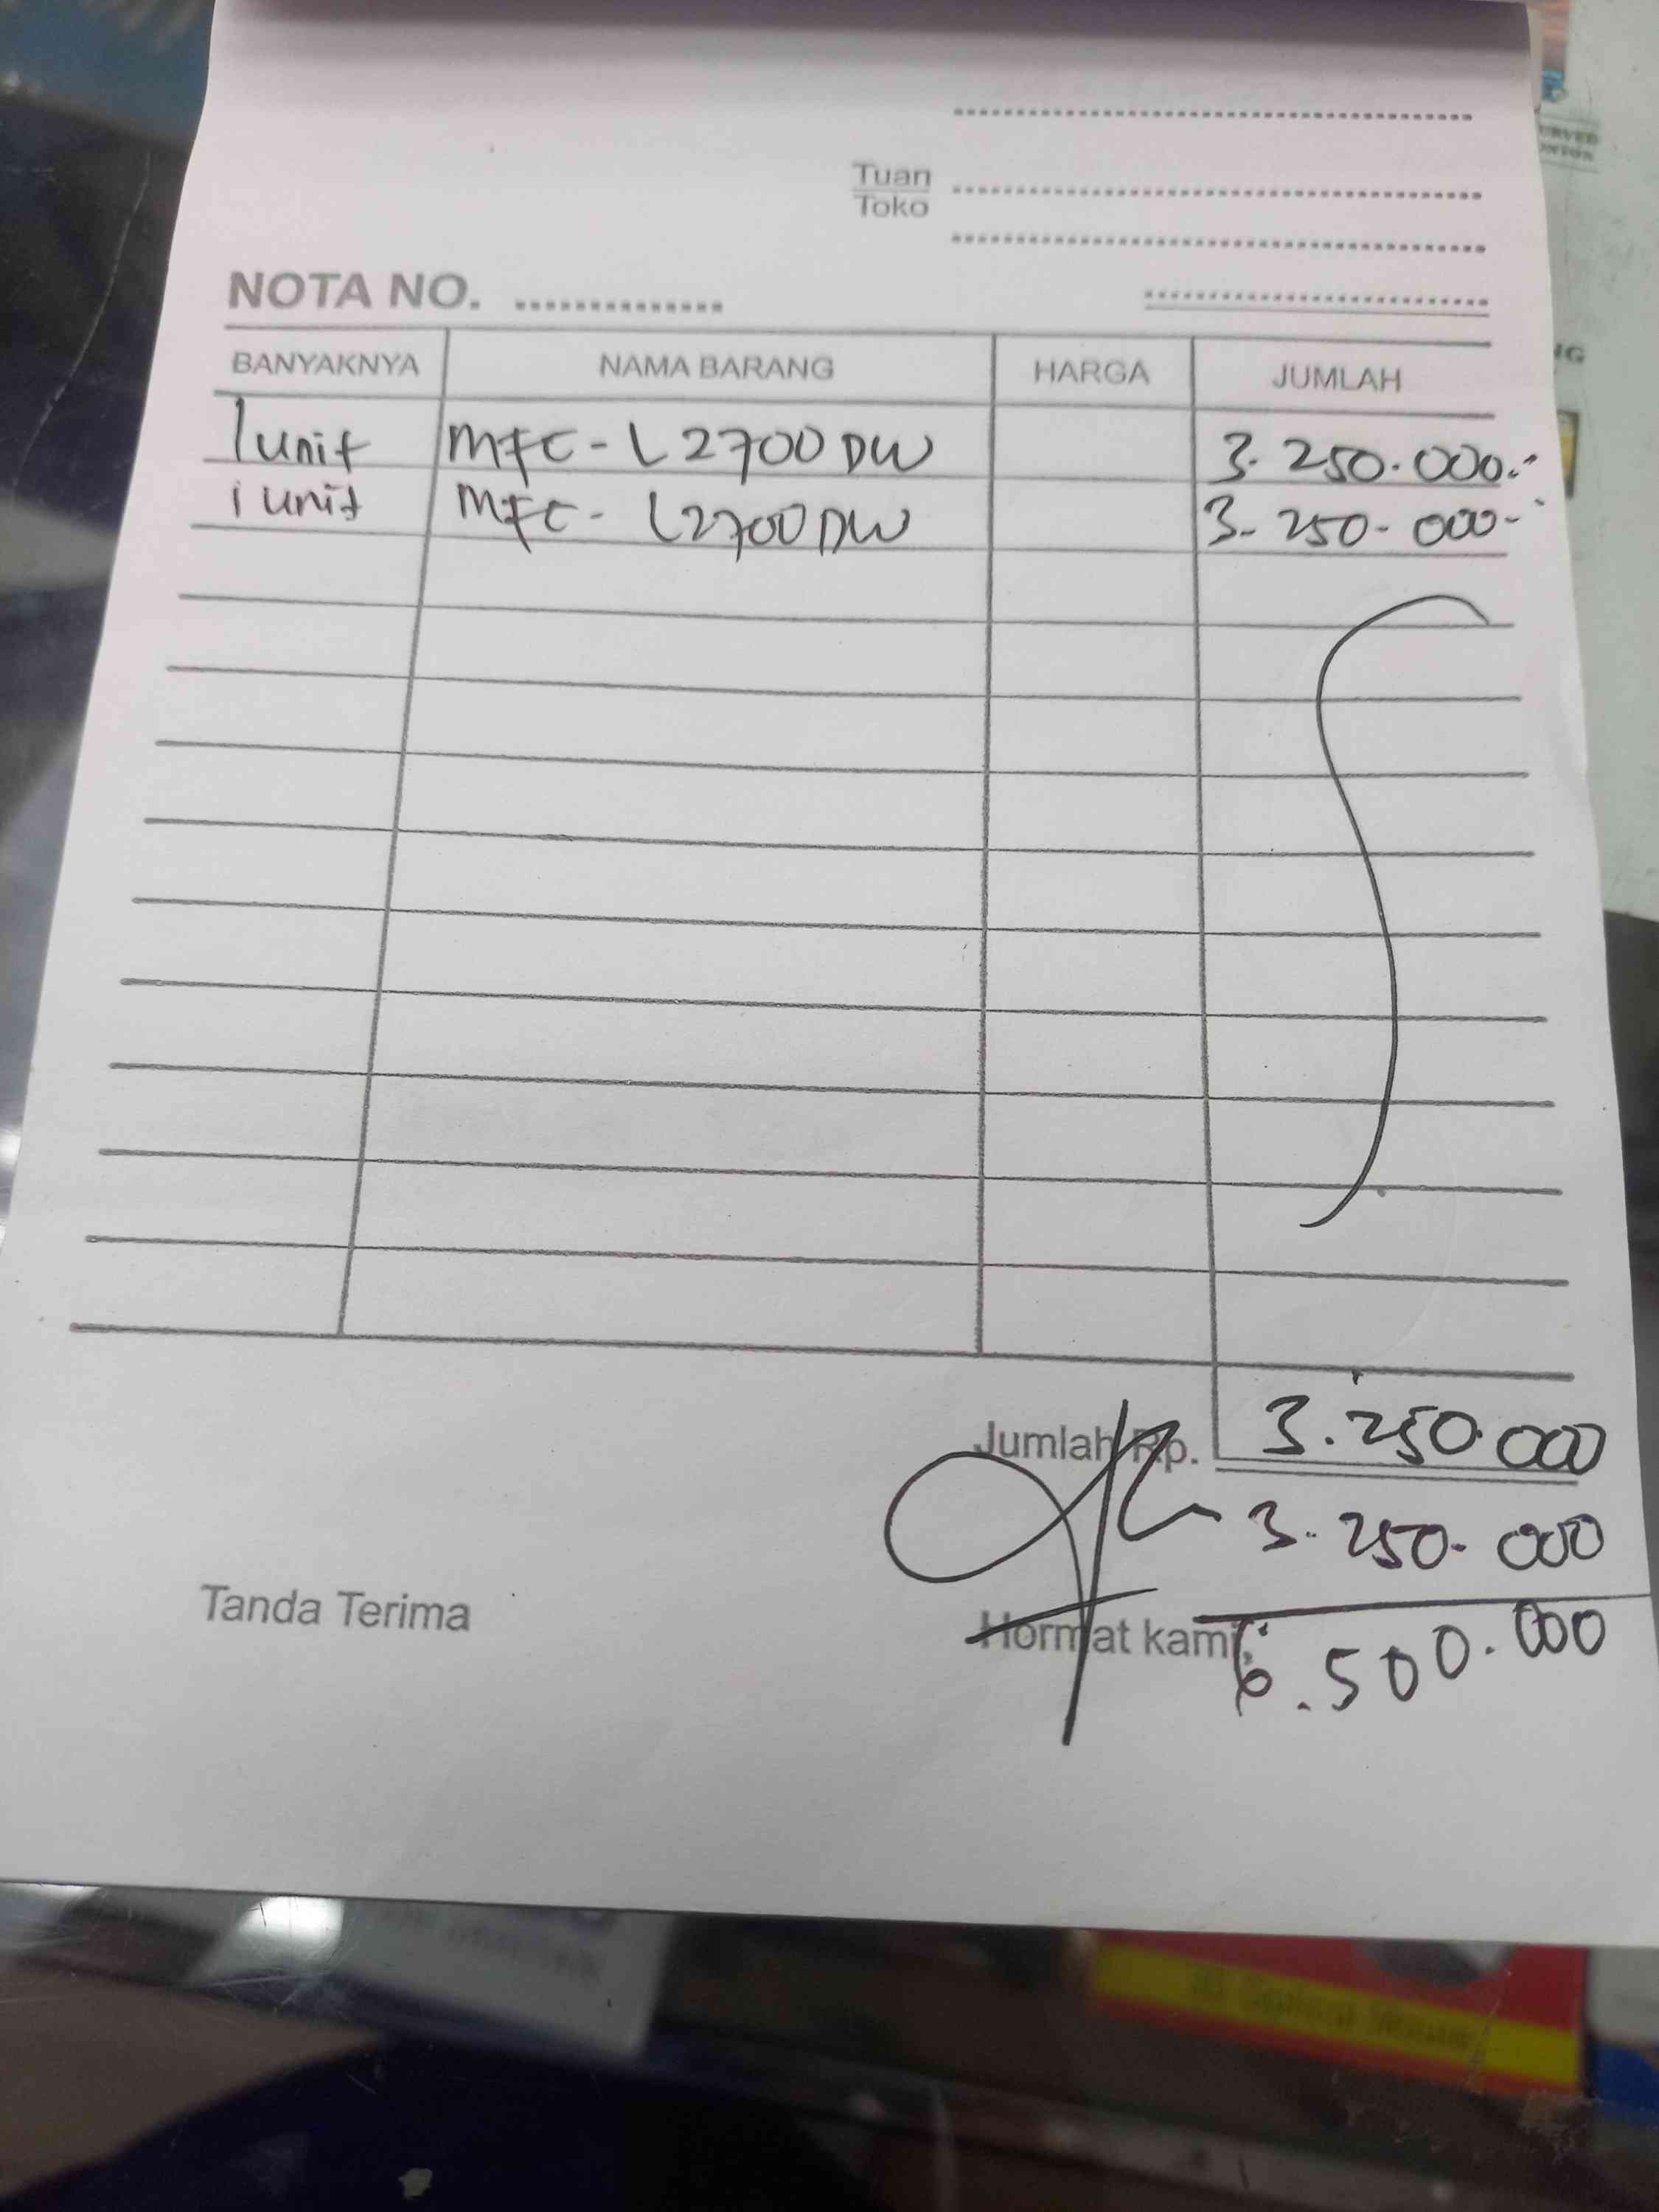 Tuan
Toko
NOTA NO.
BANYAKNYA NAMA BARANG HARGA JUMLAH
1 unit MFC - L2700DW 3.250.000.-
1 unit MFC - L2700DW 3.250.000-
Jumlah Rp. 3.250.000
3.250.000
Tanda Terima Hormat kami, 6.500.000